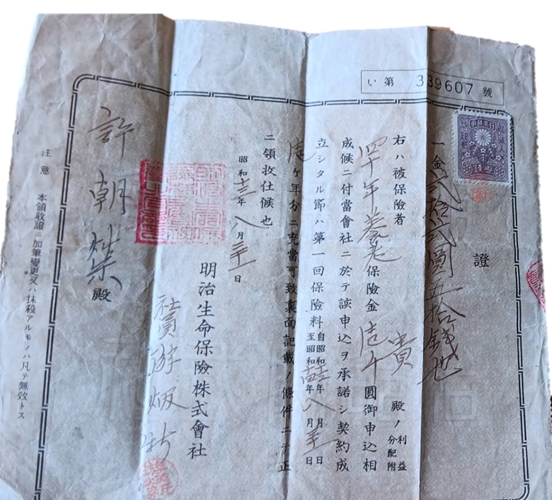 い 第 339607 號
證
一金貳拾貳圓五拾錢也
右ハ被保險者 貴 殿ノ利益分配附
四十年養老保險金壱千圓御申込相
成候ニ付當會社ニ於テ該申込ヲ承諾シ契約成
立シタル節ハ第一回保險料自昭和 年 月 日至昭和 年八月 日
壱ヶ年分ニ充當可致裏面記載ノ條件ニテ正
ニ領收仕候也
昭和 年八月 日
明治生命保險株式會社
社員
許朝 殿
注意 本領收證ニ加筆變更又ハ抹殺アルモノハ凡テ無效トス